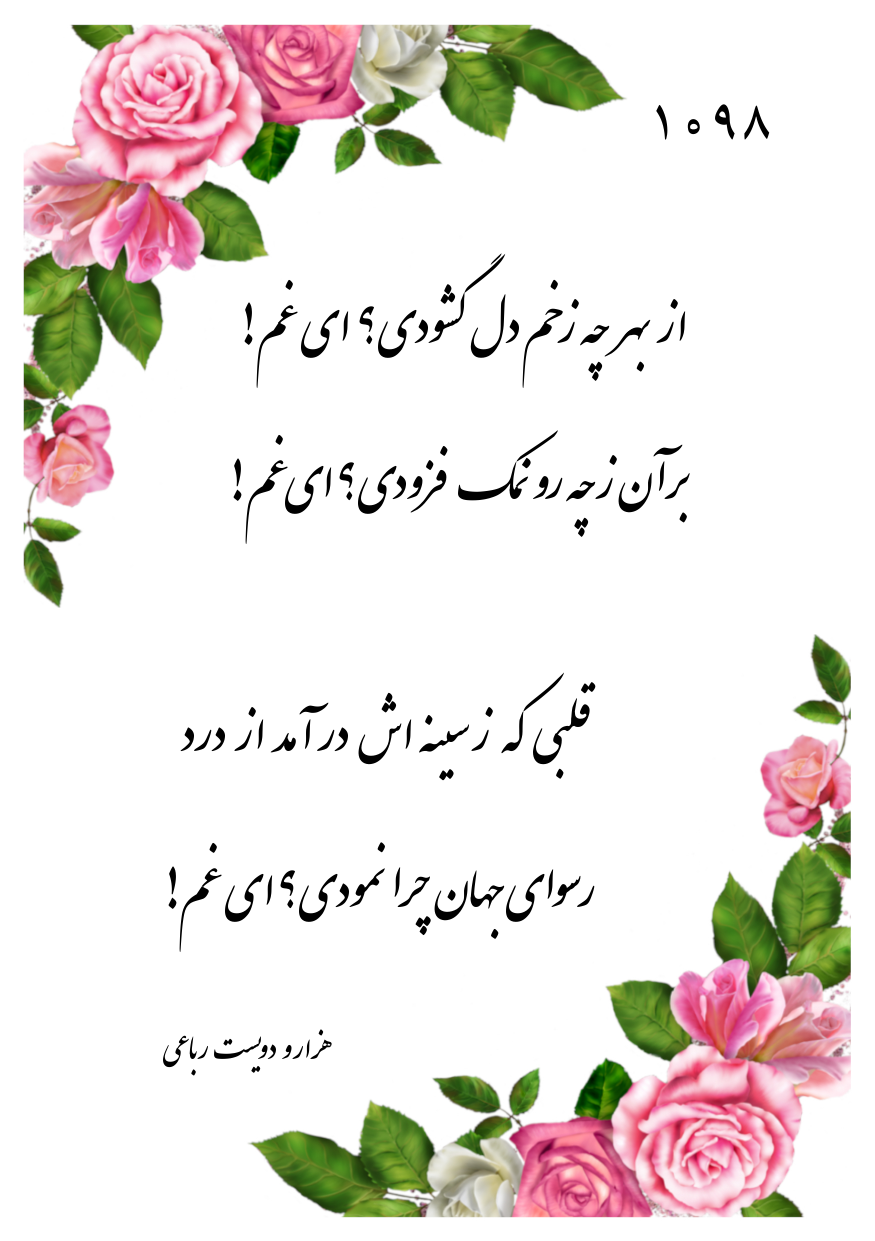 ۱۰۹۸
از بهر چه زخم دل گشودی؟ ای غم!
بر آن ز چه رو نمک فزودی؟ ای غم!
قلبی که ز سینه اش در آمد از درد
رسوای جهان چرا نمودی؟ ای غم!
هزار و دویست رباعی